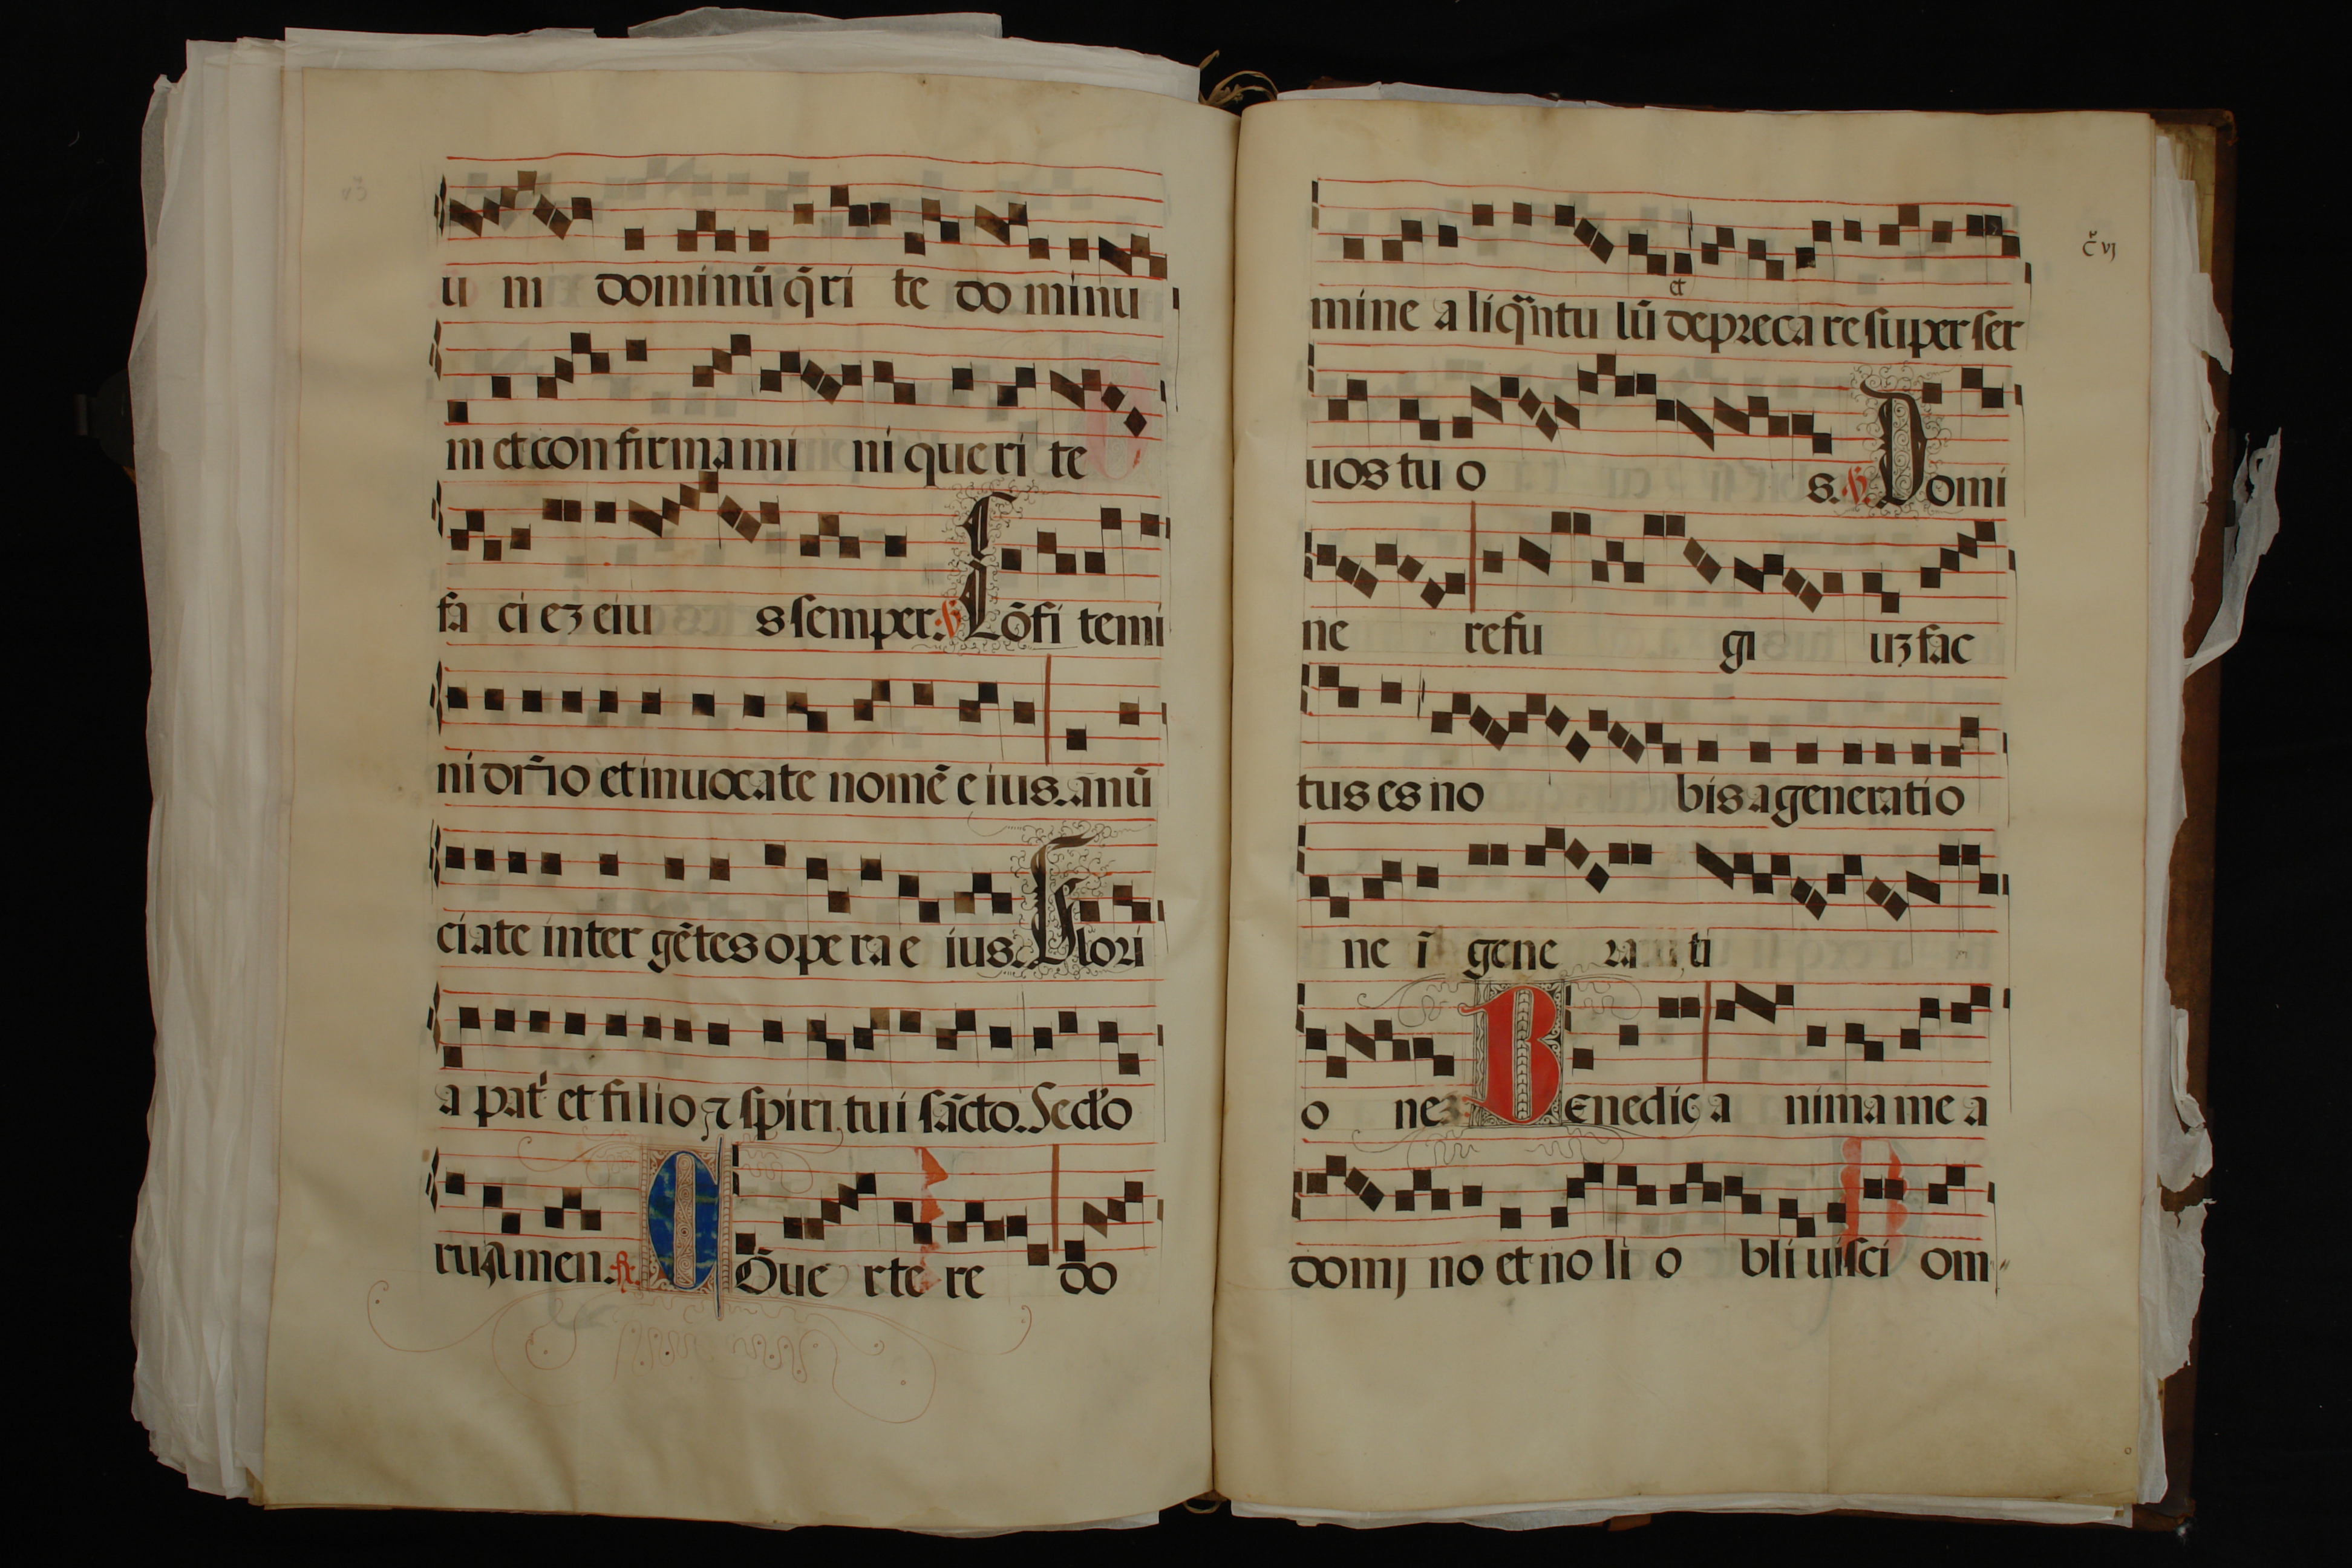 ū m dominū q̄ri te do minu
m et con firma mi ni que ri te
fa ci eʒ eiu s semper: ℣ Cōfi temi
ni dn̄o et inuocate nomē e ius. anū
ciate inter gētes ope ra e ius. Glori
a pat' et filio ⁊ spiri tui sācto. Secl'o
ruʒ amen. ℟. Cōue rte re do
c̄ vj
mine a liq̄ntu lū et depreca re super ser
uos tu o s. ℣. Domi
ne refu gi uʒ fac
tus es no bis a generatio
ne ī gene ra ti
o ne. Benedic a nima me a
domj no et no li o bli uisci om